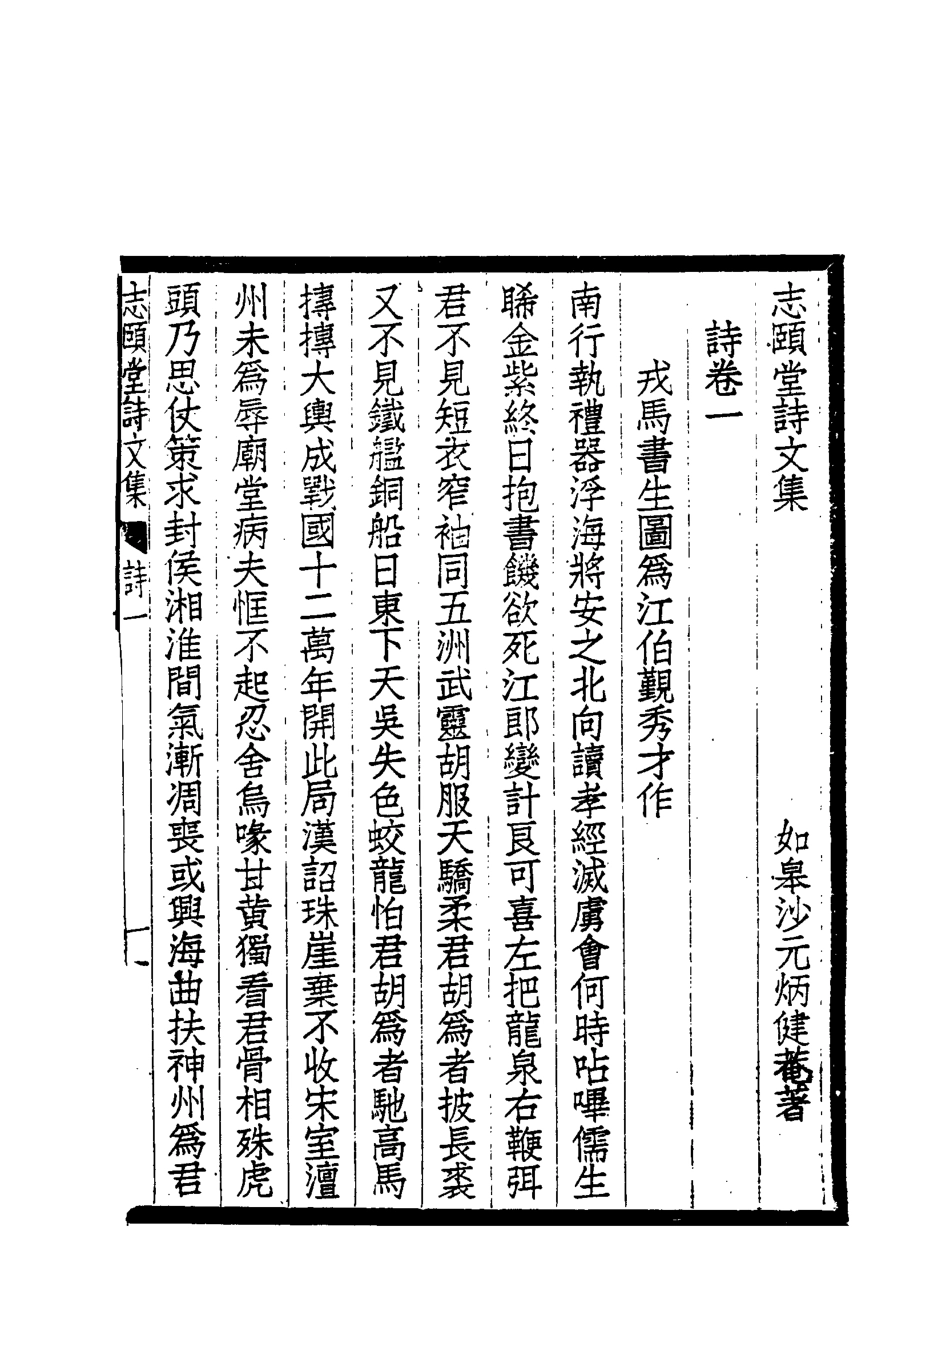 志頤堂詩文集　如皋沙元炳健菴著
詩卷一
戎馬書生圖爲江伯覲秀才作
南行執禮器浮海將安之北向讀孝經滅虜會何時呫嗶儒生
睎金紫終日抱書饑欲死江郎變計良可喜左把龍泉右鞭弭
君不見短衣窄袖同五洲武靈胡服天驕柔君胡爲者披長裘
又不見鐵艦銅船日東下天吳失色蛟龍怕君胡爲者馳高馬
摶摶大輿成戰國十二萬年開此局漢詔珠崖棄不收宋室澶
州未爲辱廟堂病夫恇不起忍舍烏喙甘黃獨看君骨相殊虎
頭乃思仗策求封侯湘淮間氣漸凋喪或興海曲扶神州爲君
志頤堂詩文集　詩一　一